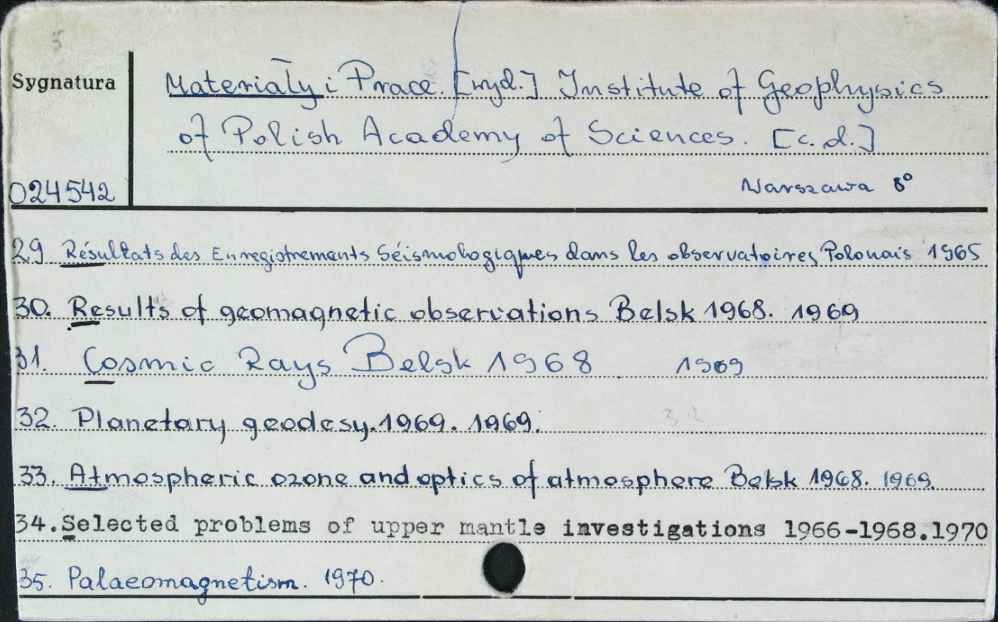 5
Sygnatura
Materiały i Prace. [wyd.] Institute of Geophysics
of Polish Academy of Sciences. [c.d.]
024542
Warszawa 8°
29 Résultats des Enregistrements Séismologiques dans les observatoires Polonais 1965
30. Results of geomagnetic observations Belsk 1968. 1969
31. Cosmic Rays Belsk 1968 1969
32. Planetary geodesy. 1969. 1969.
32
33. Atmospheric ozone and optics of atmosphere Belsk 1968. 1969.
34. Selected problems of upper mantle investigations 1966-1968.1970
35. Palaeomagnetism. 1970.